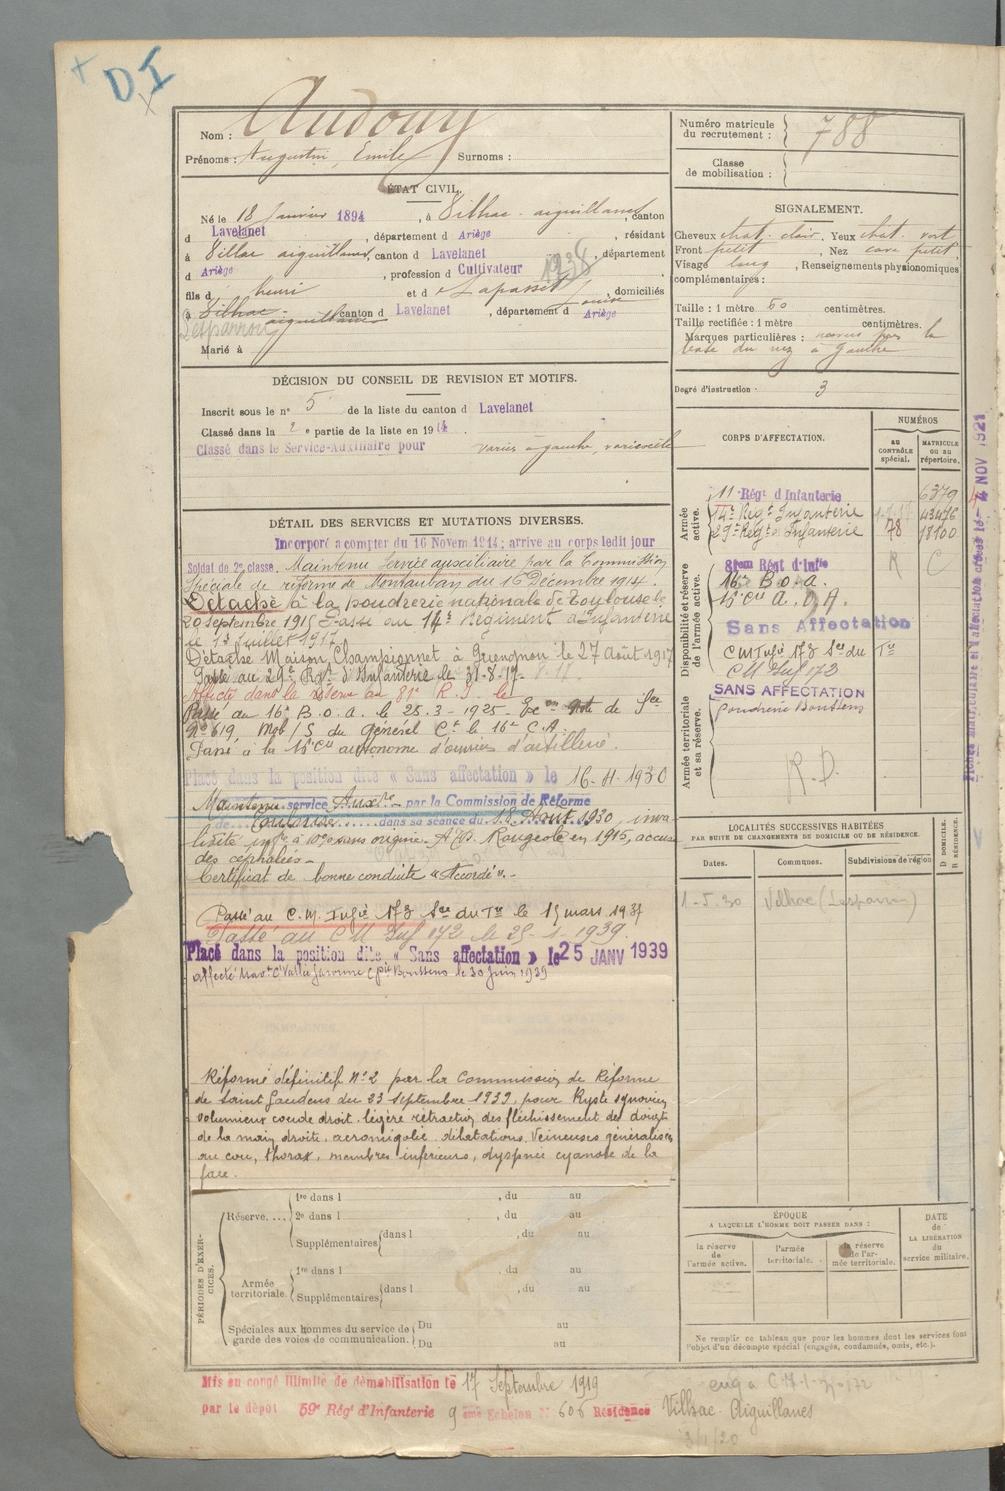 D I
Nom : Audouy
Prénoms : Augustin, Emile Surnoms :
Numéro matricule du recrutement : 788
Classe de mobilisation :
ÉTAT CIVIL.
Né le 18 Janvier 1894, à Vilhac-aiguillanes, canton
d Lavelanet, département d Ariège, résidant
à Villac aiguillanes, canton d Lavelanet, département
d Ariège, profession d Cultivateur
1938
fils d henri et d Lapasset Louise, domiciliés
à Vilhac-aiguillanes canton d Lavelanet, département d Ariège
Marié à
SIGNALEMENT.
Cheveux chat. clair. Yeux chat. vert
Front petit, Nez cave petit,
Visage long, Renseignements physionomiques
complémentaires :
Taille : 1 mètre 60 centimètres.
Taille rectifiée : 1 mètre centimètres.
Marques particulières : la
base du nez à gauche
Degré d'instruction : 3
DÉCISION DU CONSEIL DE REVISION ET MOTIFS.
Inscrit sous le n° 5 de la liste du canton d Lavelanet
Classé dans la 2 e partie de la liste en 1914.
Classé dans le Service-Auxiliaire pour varices à gauche, varicocèle
DÉTAIL DES SERVICES ET MUTATIONS DIVERSES.
Incorporé à compter du 16 Novem 1914; arrivé au corps ledit jour
Soldat de 2e classe. Maintenu Service auxiliaire par la Commission
Spéciale de réforme de Montauban du 16 Décembre 1914.
Détaché à la poudrerie nationale de Toulouse le
20 septembre 1915 Passé au 14e Régiment d'Infanterie
le 1er Juillet 1917
Détaché Maison Championnet à Guengnon le 27 Août 1917
Passé au 29e Régt d'Infanterie le 31-8-17.
Affecté dans la réserve au 81e R.I. le
Passé au 16e B.o.a. le 25.3-1925- Exon note de Sce
N° 619, Mob/S du Général Ct le 16e C.A.
Passé à la 15e Cie autonome d'ouvriers d'artillerie.
Placé dans la position dite « Sans affectation » le 16-11-1930
Maintenu service Auxre par la Commission de Réforme
de Toulouse dans sa séance du 18 Août 1930, inva
lidité infre à 10% sans origine. Rougeole en 1915, accuse
des céphalées-
Certificat de bonne conduite "Accordé".-
Passé au C.M. Infie 173 Sce du Tre le 15 mars 1937
Passé au CM Inf 172 le 25-1-1939.
Placé dans la position dite « Sans affectation » le 25 JANV 1939
Boussens le 30 Juin 1939
Réformé définitif N°2 par la Commission de Réforme
de Saint Gaudens du 23 septembre 1939, pour Kyste synovial
volumineux coude droit. légère rétraction des fléchissement des doigts
de la main droite. acromégalie. dilatations veineuses généralisées
au cou, thorax, membres inférieurs, dyspnée cyanose de la
face.
CORPS D'AFFECTATION.
NUMÉROS
au CONTRÔLE spécial.
MATRICULE ou au répertoire.
Armée active.
11 Régt d'Infanterie 6379
14e Régt Infanterie 43476
29e Régt d'Infanterie 78 18100
Disponibilité et réserve de l'armée active.
81em Régt d'Infie R C
16e B.o.a.
15e Cie A.O.A.
Sans Affectation
CM Infie 173 Sce du Tre
CM Inf 173
Armée territoriale et sa réserve.
SANS AFFECTATION
Poudrerie Boussens
R.D.
4 NOV 1921
LOCALITÉS SUCCESSIVES HABITÉES
PAR SUITE DE CHANGEMENTS DE DOMICILE OU DE RÉSIDENCE.
Dates. Communes. Subdivisions de région
D DOMICILE. R RÉSIDENCE.
1-5.30 Vilhac (Lesparrou)
PÉRIODES D'EXERCICES.
Réserve.... 1re dans l , du au
2e dans l , du au
Supplémentaires dans l , du au
, du au
Armée territoriale. 1re dans l , du au
Supplémentaires dans l , du au
Spéciales aux hommes du service de garde des voies de communication. Du au
Du au
ÉPOQUE
A LAQUELLE L'HOMME DOIT PASSER DANS :
la réserve de l'armée active.
l'armée territoriale.
la réserve de l'armée territoriale.
DATE de LA LIBÉRATION du service militaire.
Ne remplir ce tableau que pour les hommes dont les services font
l'objet d'un décompte spécial (engagés, condamnés, omis, etc.).
Mis en congé illimité de démobilisation le 17 Septembre 1919
par le dépôt 59e Régt d'Infanterie 9 ème Echelon N° 606 Résidence Vilhac Aiguillanes
3/1/20